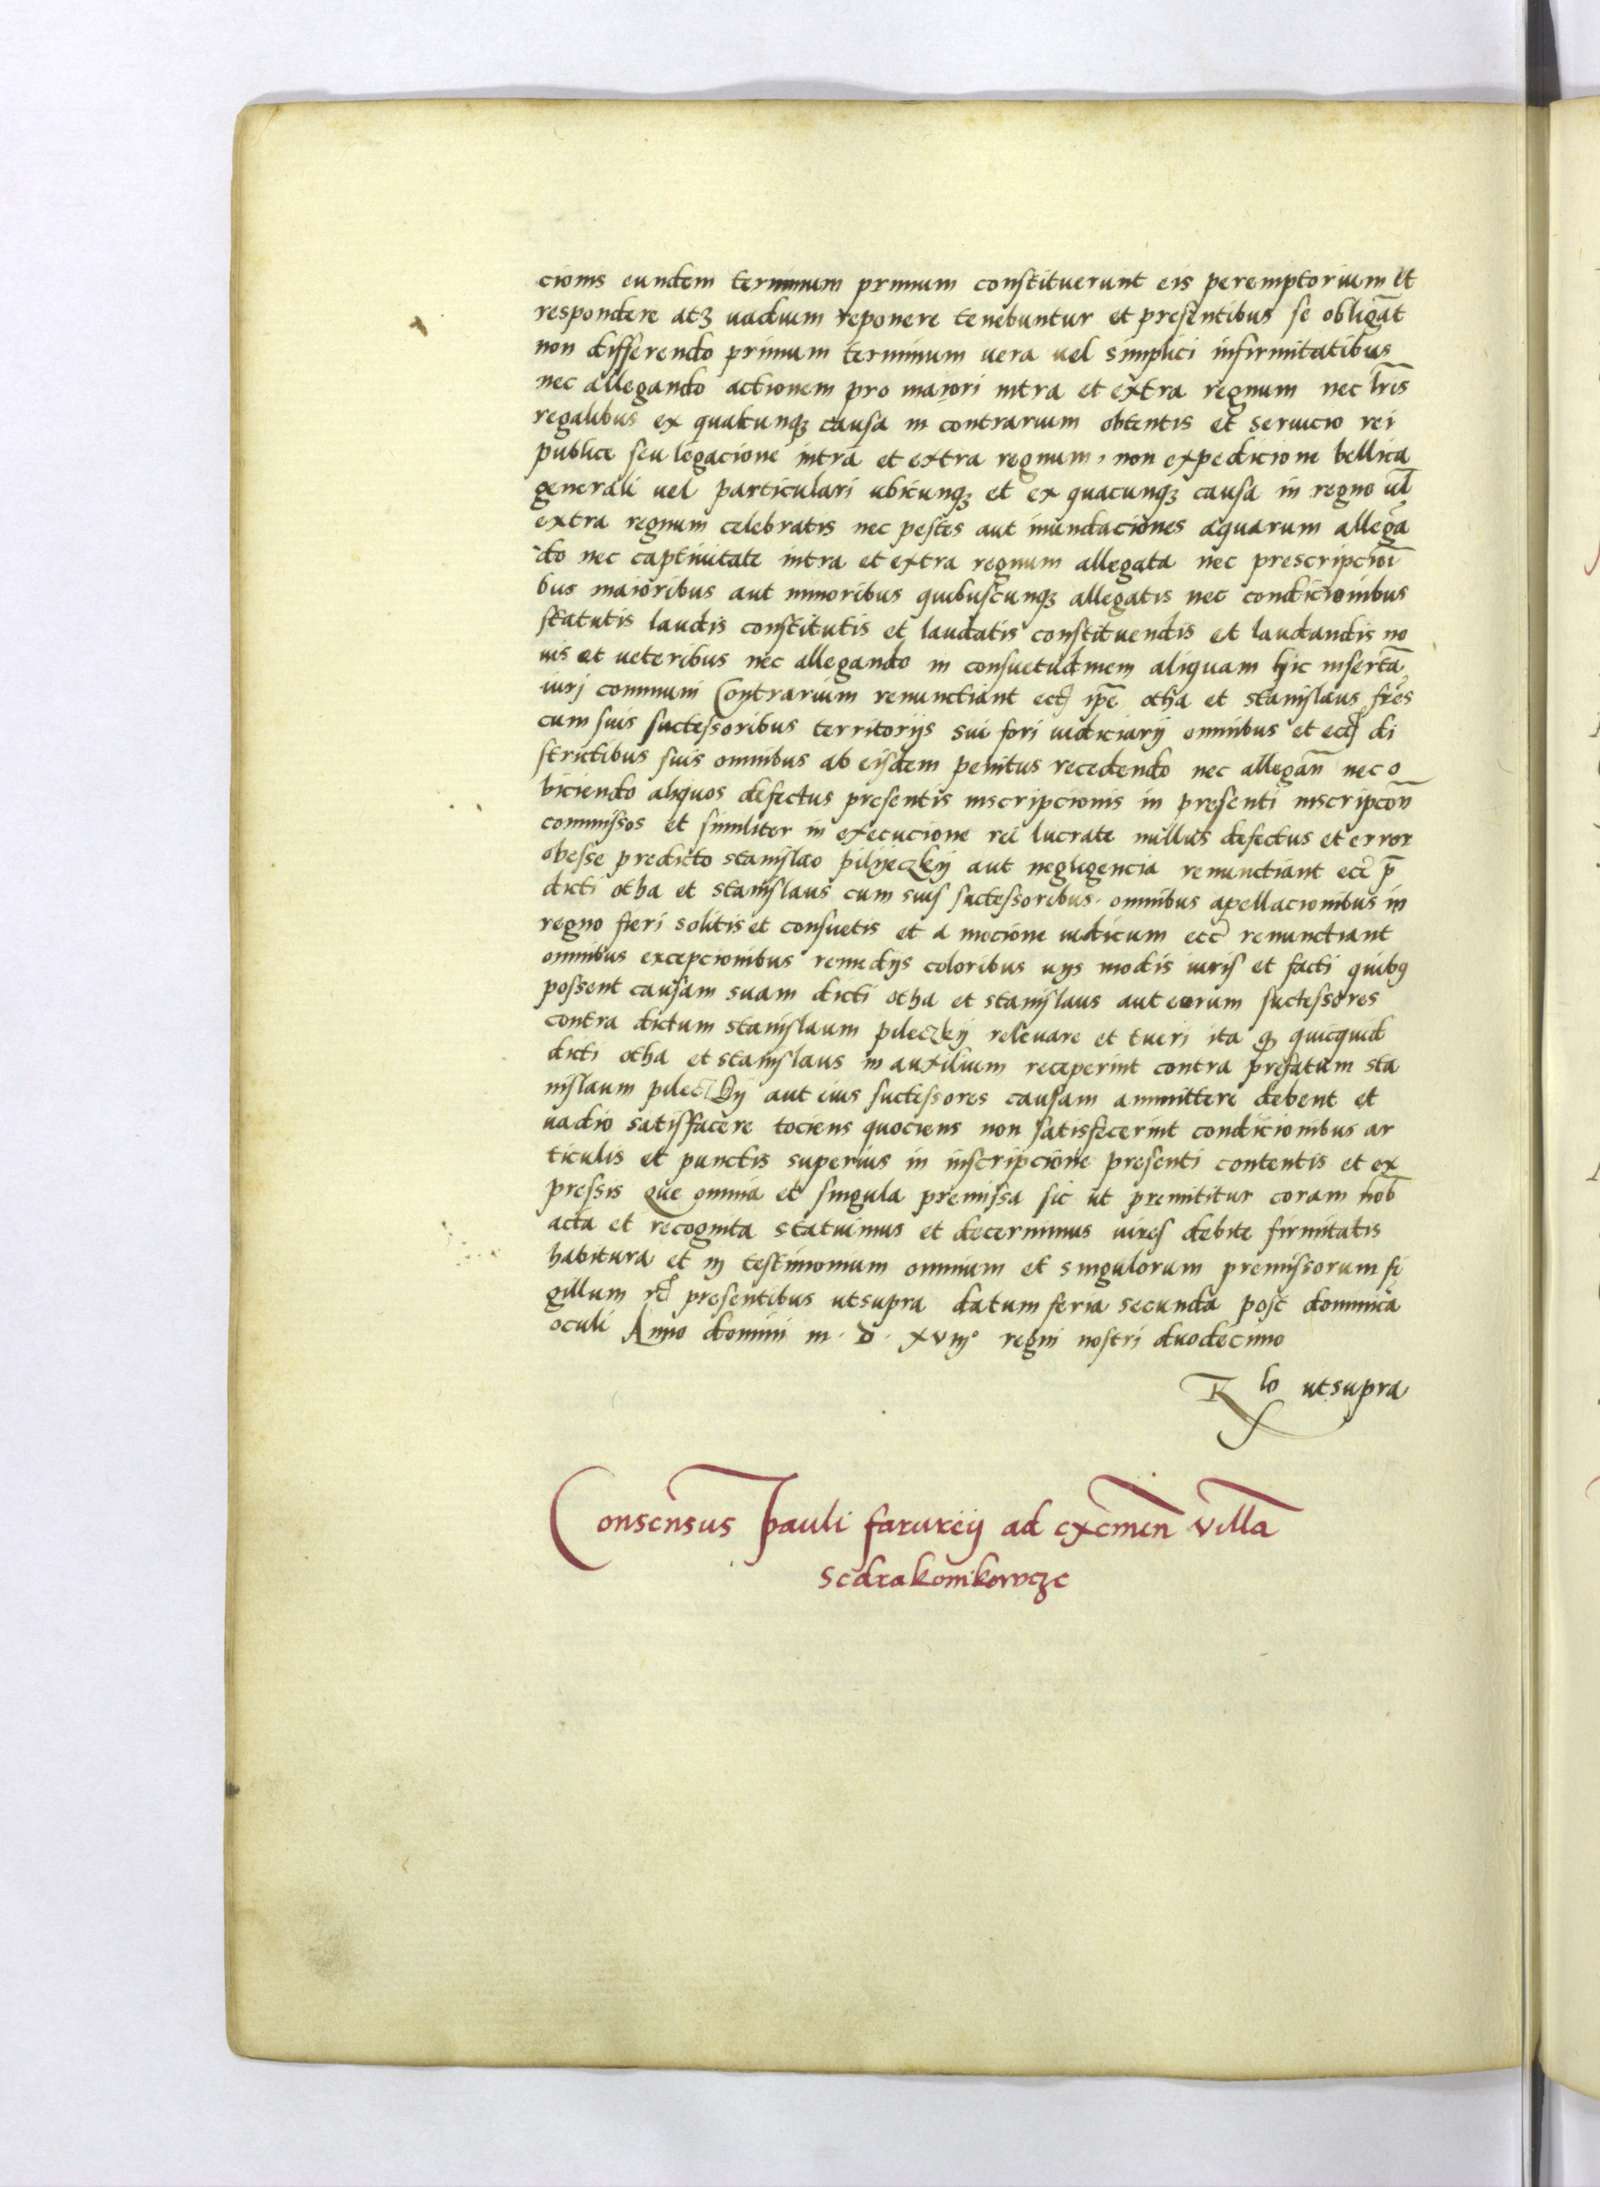 cionis eundem terminum primum constituerunt eis peremptorium Et
respondere atqꝫ uadium reponere tenebuntur et presentibus se obligāt
non differendo primum terminum uera uel simplici infirmitatibus
nec allegando actionem pro maiori intra et extra regnum nec lr̄is
regalibus ex quacunqꝫ causa in contrarium obtentis et seruicio rei
publice seu legacione intra et extra regnum, non expedicione bellica
generali uel particulari ubicunqꝫ et ex quacunqꝫ causa in regno ul̄
extra regnum celebratis nec pestes aut inundaciones aquarum allegā
do nec captiuitate intra et extra regnum allegata nec prescripcioni
bus maioribus aut minoribus quibuscunqꝫ allegatis nec condicionibus
statutis laudis constitutis et laudatis constituendis et laudandis no
uis et ueteribus nec allegando in consuetudinem aliquam hic insertā
iuri communi Contrarium renunctiant ip̄e otha et stanislaus fr̄es
cum suis successoribus territorijs sui fori iudiciarij omnibus et di
strictibus suis omnibus ab eisdem penitus recedendo nec allegān nec o
biciendo aliquos defectus presentis inscripcionis in presenti inscripcōn
commissos et similiter in execucione rei lucrate nullus defectus et error
obesse predicto stanislao pilyeczky aut negligencia renunctiant ecc̄ p̄
dicti otha et stanislaus cum suis successoribus omnibus apellacionibus in
regno fieri solitis et consuetis et a mocione iudicum ecc̄ renunctiant
omnibus excepcionibus remedijs coloribus uijs modis iuris et facti quibꝰ
possent causam suam dicti otha et stanislaus aut eorum successores
contra dictum stanislaum pileczkij releuare et tueri ita ꝙ quicquid
dicti otha et stanislaus in auxilium receperint contra prefatum sta
nislaum pileczkij aut eius successores causam ammittere debent et
uadio satisfacere tociens quociens non satisfecerint condicionibus ar
ticulis et punctis superius in inscripcione presenti contentis et ex
pressis Que omnia et singula premissa sic ut premittitur coram nob̄
acta et recognita statuimus et decernimus uires debite firmitatis
habitura et in testimonium omnium et singulorum premissorum si
gillum presentibus utsupra datum feria secunda post dominicā
oculi Anno domini m. D. xviijº regni nostri duodecimo
Rlo utsupra
Consensus Pauli farurey ad exemen villā
sedrakonikowcze